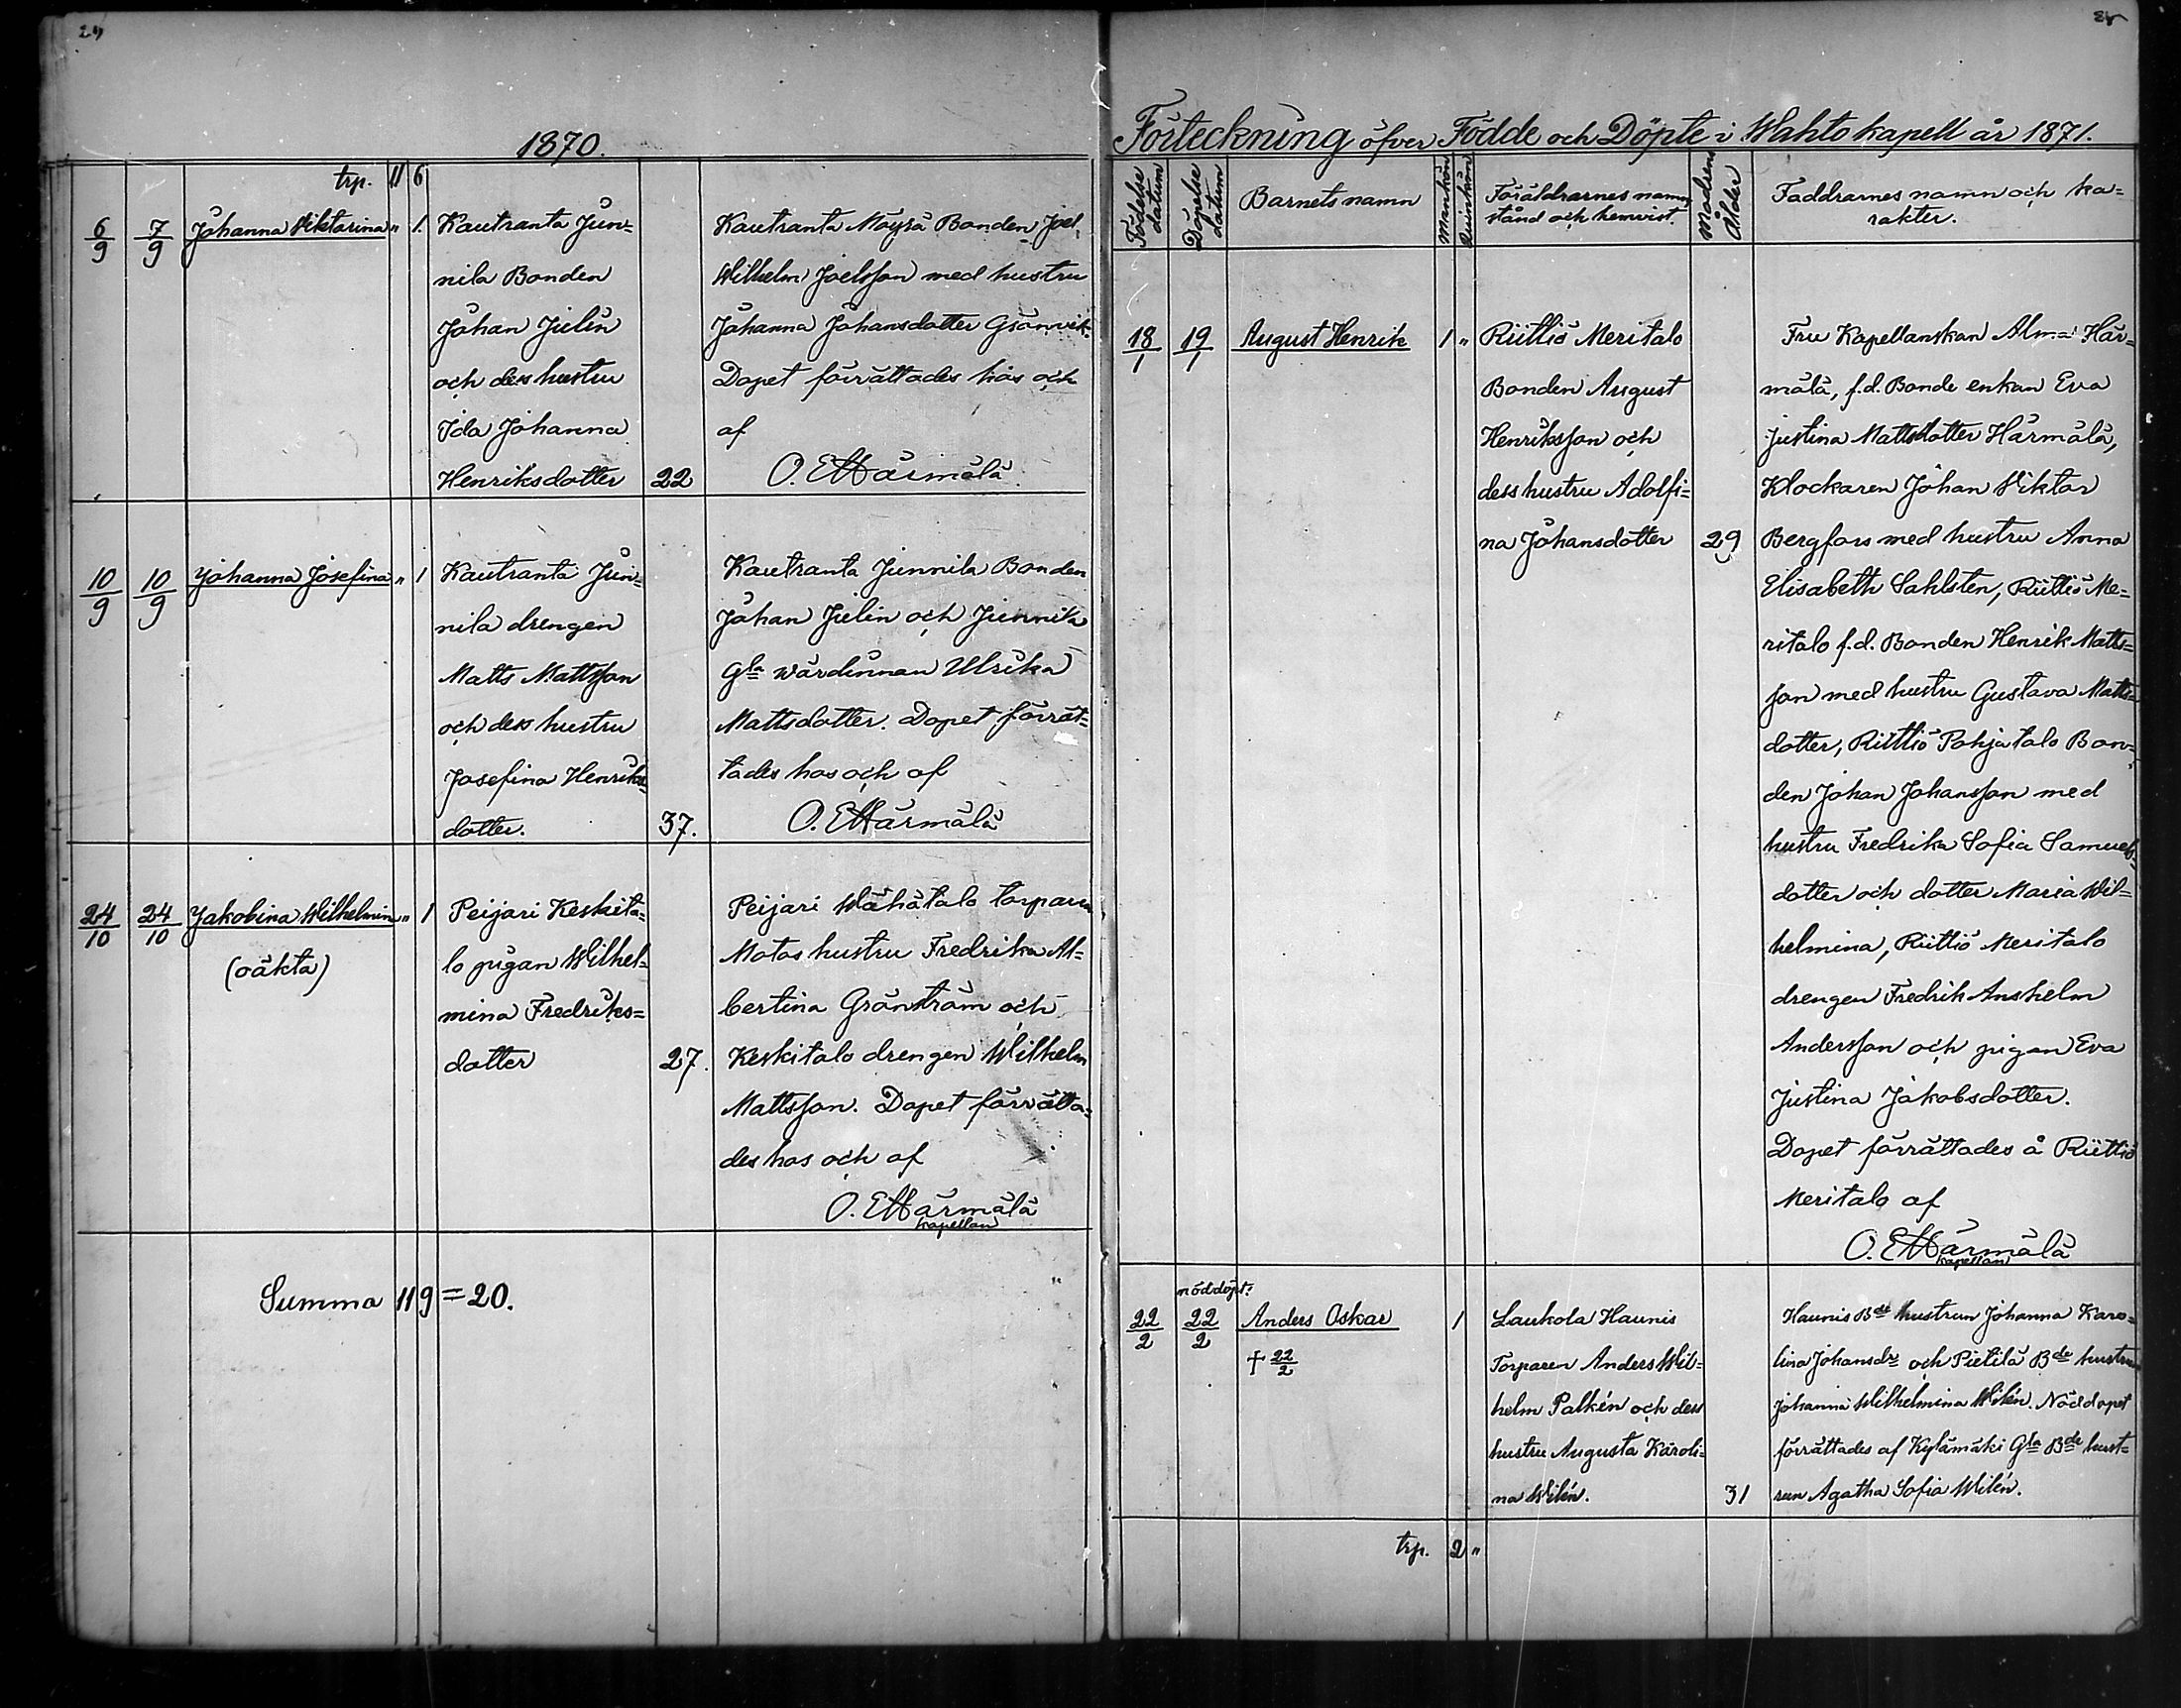 1870.
trp. 11 6
6/9 7/9 Johanna Viktorina " 1.
Kautranta Jun-
nila Bonden
Johan Juelin
och dess hustru
Ida Johanna
Henriksdotter 22
Kautranta Möyrä Bonden Joel
Wilhelm Joelsson med hustru
Johanna Johansdotter Grönvik.
Dopet förrättades hos och
af
O. E Härmälä
10/9 10/9 Johanna Josefina " 1
Kautranta Jun-
nila drengen
Matts Mattsson
och dess hustru
Josefina Henriks-
dotter. 37.
Kautranta Junnila Bonden
Johan Juelin och Junnila
Gla värdinnan Ulrika
Mattsdotter. Dopet förrät-
tades hos och af
O. E Härmälä
24/10 24/10 Jakobina Wilhelmina " 1
(oäkta)
Peijari Keskita-
lo pigan Wilhel-
mina Fredriks=
dotter 27.
Peijari Wähätalo torparen
Motos hustru Fredrika Al=
bertina Granström och
Keskitalo drengen Wilhelm
Mattsson. Dopet förrätta-
des hos och af
O. E Härmälä
kapellan
Summa 11 9 = 20.
Förteckning öfver Födde och Döpte i Wahto kapell år 1871.
Födelse datum
Döpelse datum
Barnets namn
Mankön
Quinkön
Föräldrarnes namn,
stånd och hemvist.
Modrens Ålder
Faddrarnes namn och ka=
rakter.
18/1 19/1 August Henrik 1 "
Riittiö Meritalo
Bonden August
Henriksson och
dess hustru Adolfi=
na Johansdotter 29
Fru Kapellanskan Alma Här=
mälä, f.d. Bonde enkan Eva
Justina Mattsdotter Härmälä,
Klockaren Johan Viktor
Bergfors med hustru Anna
Elisabeth Sahlsten, Riittiö Me=
ritalo f.d. Bonden Henrik Matts=
son med hustru Gustava Matts-
dotter, Riittiö Pohjatalo Bon=
den Johan Johansson med
hustru Fredrika Sofia Samuels-
dotter och dotter Maria Wil=
helmina, Riittiö Meritalo
drengen Fredrik Anshelm
Andersson och pigan Eva
Justina Jakobsdotter.
Dopet förrättades å Riittiö
Meritalo af
O. E Härmälä
kapellan
nöddöpt.
22/2 22/2 Anders Oskar 1
† 22/2
Laukola Haunis
Torparen Anders Wil=
helm Palkén och dess
hustru Augusta Karoli=
na Wilén. 31
Haunis Bde hustrun Johanna Karo=
lina Johansdr och Pietilä Bde hustrun
Johanna Wilhelmina Wilén. Nöddopet
förrättades af Kylämäki Gla Bde hust=
run Agatha Sofia Wilén.
trp. 2 "